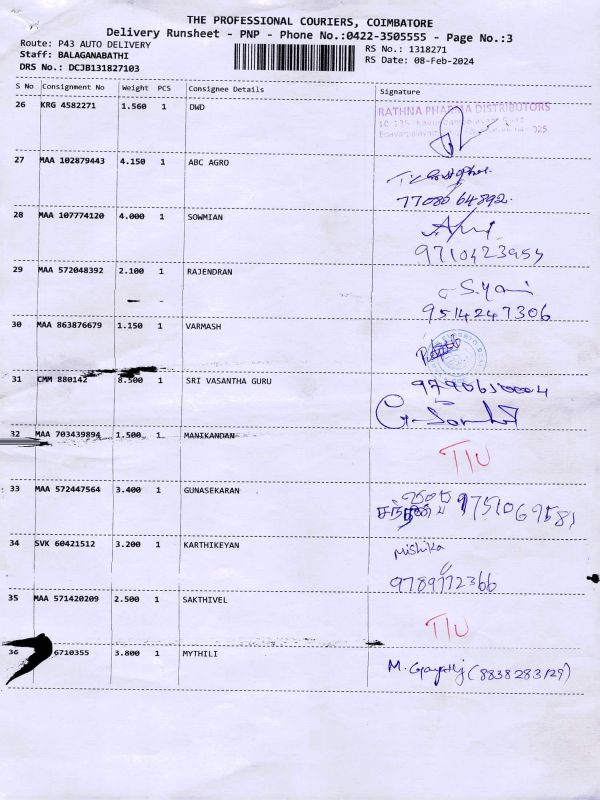 THE PROFESSIONAL COURIERS, COIMBATORE
Delivery Runsheet - PNP - Phone No.:0422-3505555 - Page No.:3
Route: P43 AUTO DELIVERY
RS No.: 1318271
Staff: BALAGANABATHI
RS Date: 08-Feb-2024
DRS No.: DCJB131827103
S No Consignment No Weight PCS Consignee Details Signature
26 KRG 4582271 1.560 1 DWD
RATHNA PHARMA DISTRIBUTORS
27 MAA 102879443 4.150 1 ABC AGRO
7708064892
28 MAA 107774120 4.000 1 SOWMIAN
9710423954
29 MAA 572048392 2.100 1 RAJENDRAN
9514247306
30 MAA 863876679 1.150 1 VARMASH
31 CMM 880142 8.500 1 SRI VASANTHA GURU 9790610004
32 MAA 703439894 1.500 1 MANIKANDAN
T/U
33 MAA 572447564 3.400 1 GUNASEKARAN
9751069581
34 SVK 60421512 3.200 1 KARTHIKEYAN Mishika
9789172366
35 MAA 571420209 2.500 1 SAKTHIVEL
T/U
36 6710355 3.800 1 MYTHILI
M. Gayathj (8838283129)